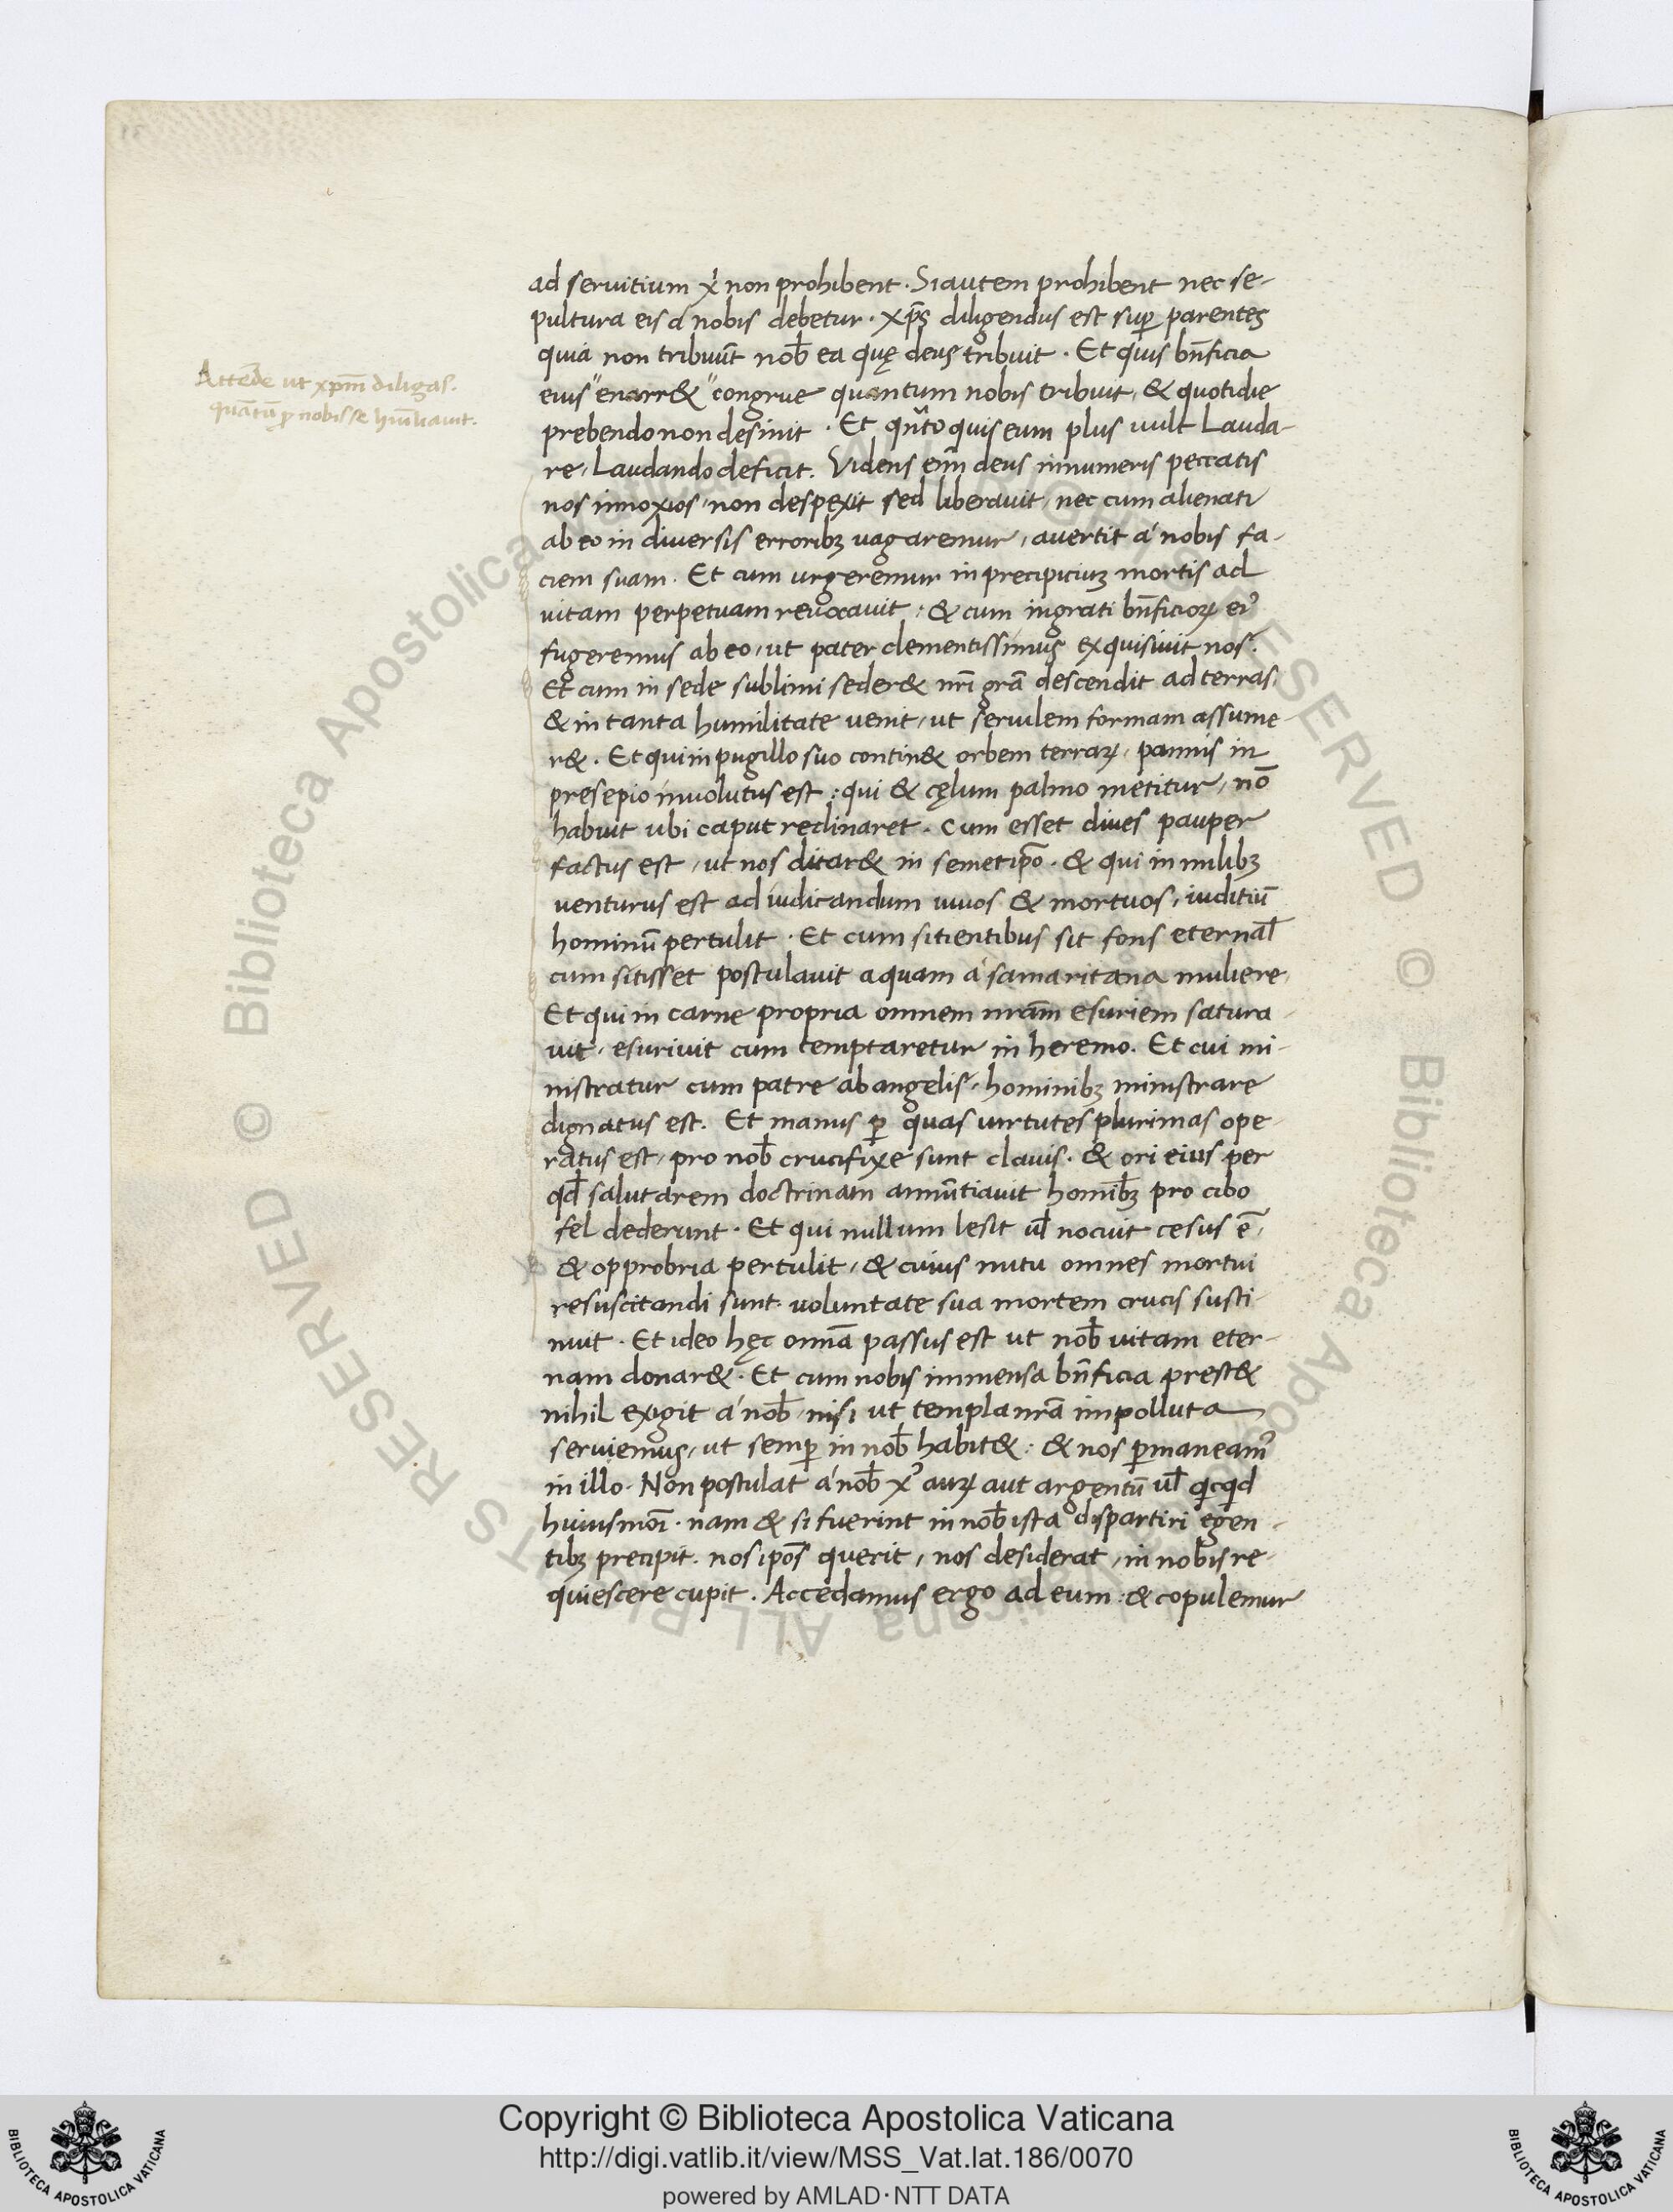 ad seruitium xi non prohibent. Si autem prohibent nec se-
pultura eis a nobis debetur. xp̄s diligendus est sup̄ parentes
quia non tribuūt nob̄ ea quę deus tribuit. Et quis bn̄ficia
eius "enarr& "congrue quantum nobis tribuit, & quotidie
prebendo non desinit. Et qn̄to quis eum plus uult Lauda-
re, Laudando deficit. Videns eni᷑ deus innumeris peccatis
nos innoxios, non despexit sed liberauit, nec cum alienati
ab eo in diuersis erroribꝫ uagaremur, auertit á nobis fa-
ciem suam. Et cum urgeremur in precipiciuꝫ mortis ad
uitam perpetuam reuocauit: & cum ingrati bn̄ficioꝝ ei᾽
fugeremus ab eo, ut pater clementissimus exquisiuit nos.
Et cum in sede sublimi seder& nrī grā descendit ad terras.
& in tanta humilitate uenit, ut seruilem formam assume-
r&. Et qui in pugillo suo contin& orbem terraꝝ, pannis in
presepio inuolutus est: qui & cęlum palmo metitur, nō
habuit ubi caput reclinaret. Cum esset diues pauper
factus est, ut nos ditar& in semetip̄o. & qui in nubibꝫ
uenturus est ad iudicandum uiuos & mortuos, iuditiū
hominū pertulit. Et cum sitientibus sit fons eternal̄
cum sitisset postulauit aquam á samaritana muliere.
Et qui in carne propria omnem nrām esuriem satura-
uit, esuriuit cum temptaretur in heremo. Et cui mi-
nistratur cum patre ab angelis, hominibꝫ ministrare
dignatus est. Et manus ꝑ quas uirtutes plurimas ope-
ratus est, pro nob̄ crucifixe sunt clauis. & ori eius per
qd̄ salutarem doctrinam annūtiauit homībꝫ pro cibo
fel dederunt. Et qui nullum lesit ul̄ nocuit cesus ē,
& opprobria pertulit, & cuius nutu omnes mortui
resuscitandi sunt. uoluntate sua mortem crucis susti-
nuit. Et ideo hęc omīa passus est ut nob̄ uitam eter-
nam donar&. Et cum nobis immensa bn̄ficia prest&
nihil exigit á nob̄, nisi ut templa nrā impolluta
seruemus, ut semp̄ in nob̄ habit&: & nos ꝑmaneam᾽
in illo. Non postulat á nob̄ x᾽ auꝝ aut argentū ul̄ qicqid
huiusmoī. nam & si fuerint in nob̄ ista dispartiri egen-
tibꝫ precipit. nos ip̄os querit, nos desiderat, in nobis re-
quiescere cupit. Accedamus ergo ad eum: & copulemur
Attēde ut xpm̄ diligas.
quātū ꝓ nobis se humīliauit.
Copyright © Biblioteca Apostolica Vaticana
http://digi.vatlib.it/view/MSS_Vat.lat.186/0070
powered by AMLAD·NTT DATA
BIBLIOTECA APOSTOLICA VATICANA
BIBLIOTECA APOSTOLICA VATICANA
© Biblioteca Apostolica Vaticana ALL RIGHTS RESERVED
© Biblioteca Apostolica Vaticana ALL RIGHTS RESERVED